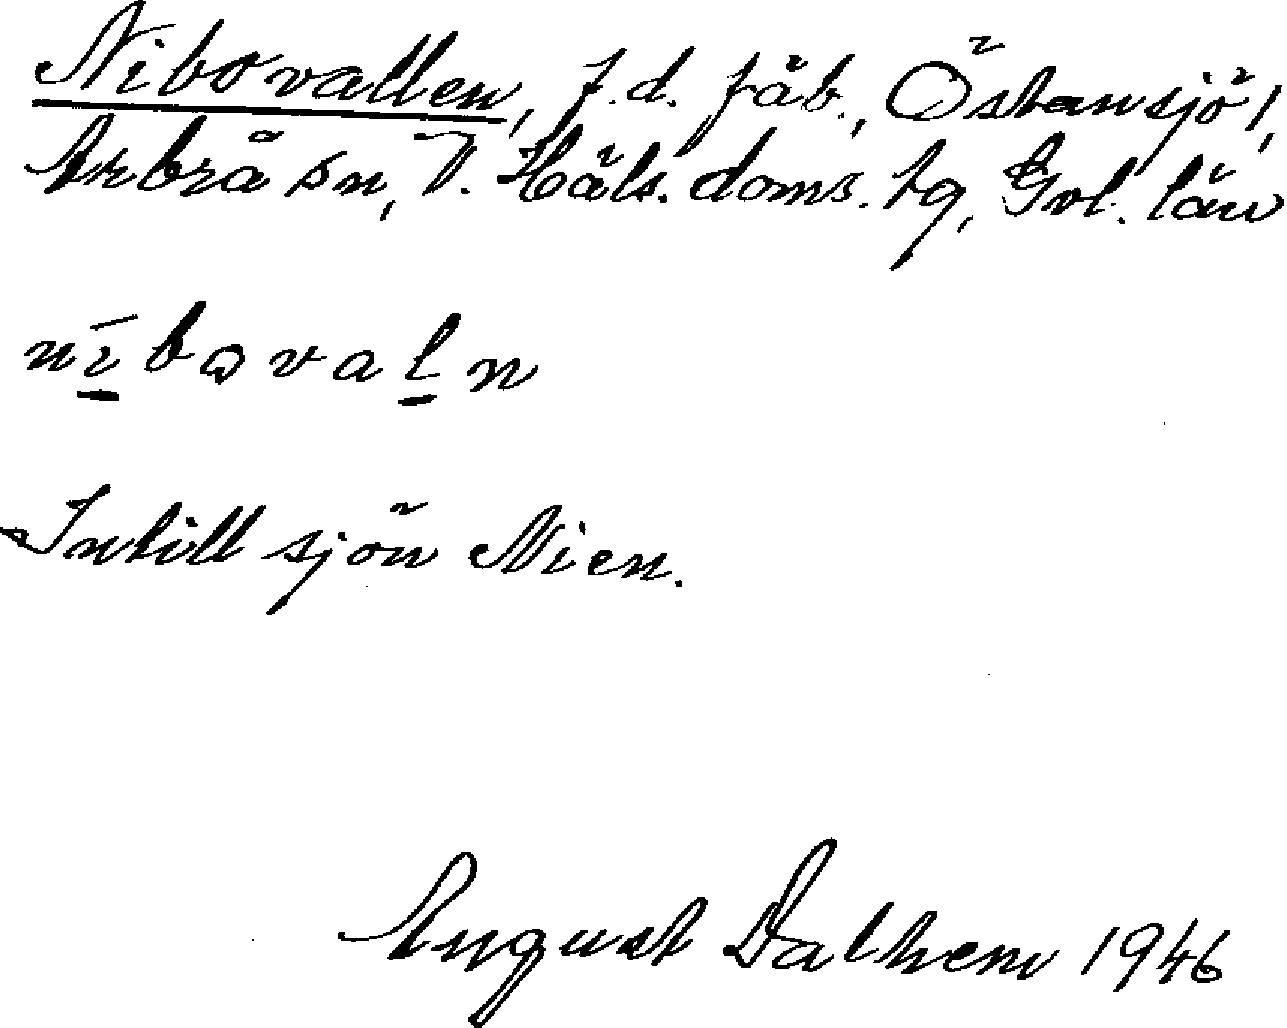 Nibovallen, f.d. fäb., Östansjö,
Arbrå sn, V. Häls. doms. tg, Gvl. län
nı̄bovaln
Intill sjön Nien.
August Dalhem 1946